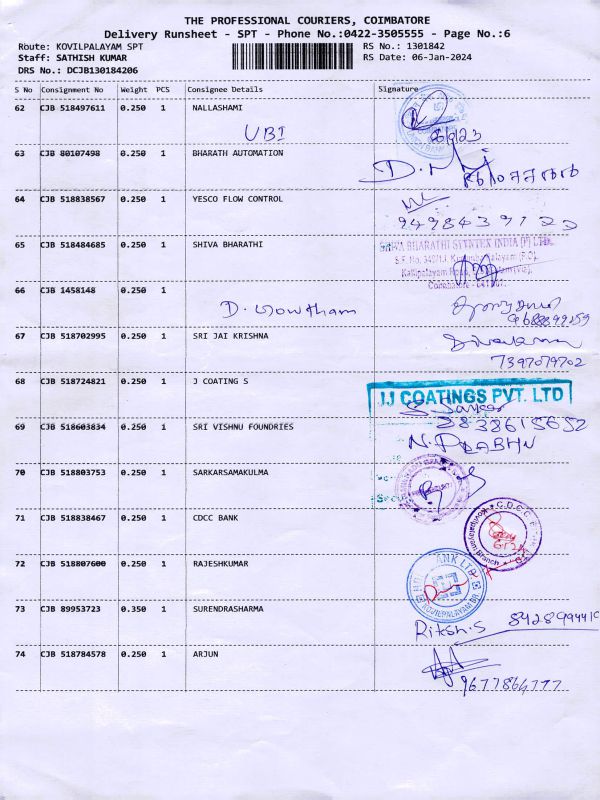 THE PROFESSIONAL COURIERS, COIMBATORE
Delivery Runsheet - SPT - Phone No.:0422-3505555 - Page No.:6
Route: KOVILPALAYAM SPT
RS No.: 1301842
Staff: SATHISH KUMAR
RS Date: 06-Jan-2024
DRS No.: DCJB130184206
S No Consignment No Weight PCS Consignee Details Signature
62 CJB 518497611 0.250 1 NALLASHAMI
UBI
63 CJB 80107498 0.250 1 BHARATH AUTOMATION
64 CJB 518838567 0.250 1 YESCO FLOW CONTROL
65 CJB 518484685 0.250 1 SHIVA BHARATHI
SHIVA BHARATHI SYNTEX INDIA (P) LTD.
66 CJB 1458148 0.250 1
D. Gowtham
9688899259
67 CJB 518702995 0.250 1 SRI JAI KRISHNA
Divakaran
7397079702
68 CJB 518724821 0.250 1 J COATING S
JJ COATINGS PVT. LTD
S. Sankar
69 CJB 518603834 0.250 1 SRI VISHNU FOUNDRIES
N. PRABHU
70 CJB 518803753 0.250 1 SARKARSAMAKULMA
71 CJB 518838467 0.250 1 CDCC BANK
72 CJB 518807600 0.250 1 RAJESHKUMAR
73 CJB 89953723 0.350 1 SURENDRASHARMA
Riksh.S
74 CJB 518784578 0.250 1 ARJUN
9677864777